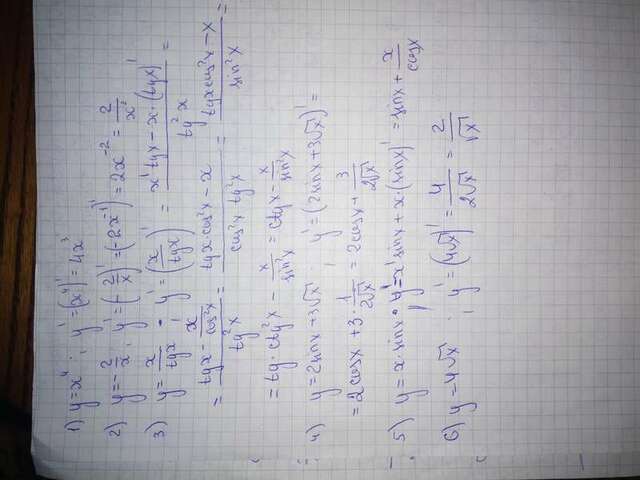 1) y=x⁴ ; y'=(x⁴)'=4x³
2) y=-2/x ; y'=(-2/x)'=(-2x⁻¹)'=2x⁻²=2/x²
3) y=x/tgx ; y'=(x/tgx)'=(x'tgx-x·(tgx)')/tg²x=
=(tgx-x/cos²x)/tg²x=(tgx·cos²x-x)/(cos²x tg²x)=(tgxcos²x-x)/sin²x=
=tg·ctg²x-x/sin²x=ctgx-x/sin²x
4) y=2sinx+3√x ; y'=(2sinx+3√x)'=
=2cosx+3·1/(2√x)=2cosx+3/(2√x)
5) y=x·sinx ; y'=x'sinx+x·(sinx)'=sinx+x/cosx
6) y=4√x ; y'=(4√x)'=4/(2√x)=2/√x